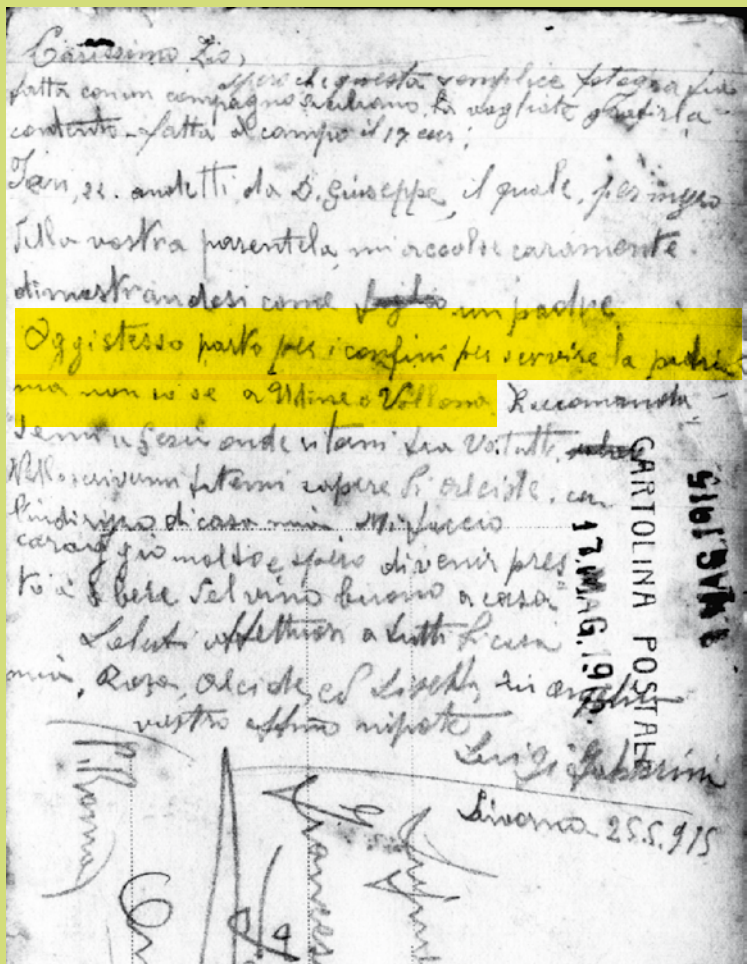 Carissimo Zio,
spero che questa semplice fotografia
fatta con un compagno siciliano, la vogliate gradirla
contento - fatta al campo il 17 cor;
Ieri, 22. andetti da D. Giuseppe, il quale, per mezzo
della vostra parentela, mi accolse caramente
dimostrandosi come un padre
Oggi stesso parto per i confini per servire la patria
ma non so se a Udine o Vallona. Raccomanda
temi a Gesù onde ritorni fra voi tutti,
Nello scrivermi fatemi sapere di Alcide, con
l'indirizzo di casa mia. Mi faccio
coraggio molto e spero di venir pres
to a bere del vino buono a casa
Saluti affettuosi a tutti di casa
mia, Rosa, Alcide, ed Lisetta,
vostro affmo nipote
Luigi
Livorno 25.5.915
CARTOLINA POSTALE
17.MAG.191
MAG.1915